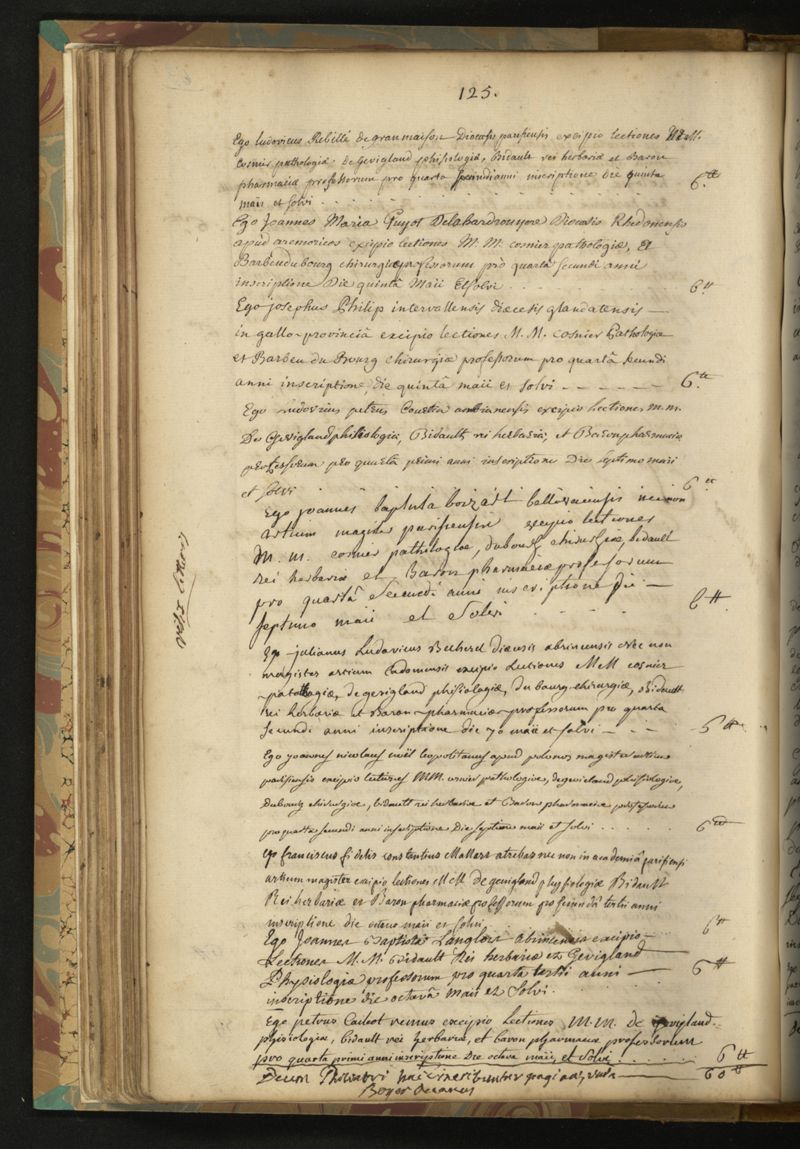 125.
Ego ludovicus Rebillé de granmaison Dioecesis parisiensis excipio lectiones M.M.
Cosnier pathologiæ, De Gevigland phisiologiæ, Bidault rei herbariæ et Baron
pharmaciæ professorum pro quarta secundi anni inscriptione die quinta
maii et solvi . . . . . 6.tt
Ego Joannes Maria Guyot Delahardrouyere Diœcesis Rhedonensis
apud aremoricos excipio lectiones M. M. cosnier pathologiæ, Et
Barbeudubourg chirurgiæ professorum pro quarta secundi anni
inscriptione Die quintâ Maii Et solvi . . . 6.tt
Ego josephus Philip intervallensis diœcesis glandatensis —
in gallo-provinciâ excipio lectiones M. M. cosnier Pathologiæ
et Barbeu du Bourg chirurgiæ professorum pro quartâ secundi
anni inscriptione die quintâ maii et solvi — — — — — 6.tt
Ego Ludovicus petrus ambianensis excipio lectiones m.m.
De Gevigland phisiologiæ, Bidault rei herbariæ, et Baron pharmaciæ
professorum pro quarta primi anni inscriptione Die septimo maii
et solvi 6 tt
Ego joannes baptista boizart bellovacensis nec non
artium magister parisiensis excipio lectiones
M. m. cosnier pathologiæ, dubourg chirurgiæ, bidault
rei herbariæ et Baron pharmaciæ professorum
pro quartâ secundi anni inscriptione die —
septimo maii et solvi . . . . 6 tt
Ego julianus Ludovicus Becherel diœcesis abrincensis nec non
magister artium Cadomensis excipio Lectiones M M cosnier
pathologiæ, de gevigland phisiologiæ, du bourg chirurgiæ, Bidault
rei herbariæ et Baron pharmaciæ professorum pro quarta
secundi anni inscriptione die 7a maii et solvi — — — 6 tt
Ego joannes nicolaus leopolitanus apud polonos magister artium
parisiensis excipio lectiones MM. cosnier pathologiæ, degevigland phisiologiæ,
Dubourg chirurgiæ, bidault rei herbariæ et Baron pharmaciæ professorum
pro quarta secundi anni inscriptione Die septimo maii et solvi . . . . . 6 tt
Ego franciscus fidelis constantinus Mallart atrebas nec non in academiâ parisiensi
artium magister excipio lectiones M M De gevigland physiologiæ Bidault
Rei herbariæ et Baron pharmaciæ professorum pro secundâ tertii anni
inscriptione die octavo maii et solvi . . . 6 tt
Ego Joannes Baptista Langlois abrincensis excipio —
Lectiones M. M. Bidault Rei herbariæ et Gevigland
Physiologiæ professorum pro quarta tertii anni — 6 tt
inscriptione die octavâ Maii et Solvi.
Ego petrus excipio Lectiones M. M. de Gevigland
physiologiæ, bidault rei herbariæ, et baron pharmaciæ professorum
pro quarta primi anni inscriptione Die octava maii, et solvi 6 tt
Decem Philiatri hac in pagina — 60 tt
Boyer Decanus